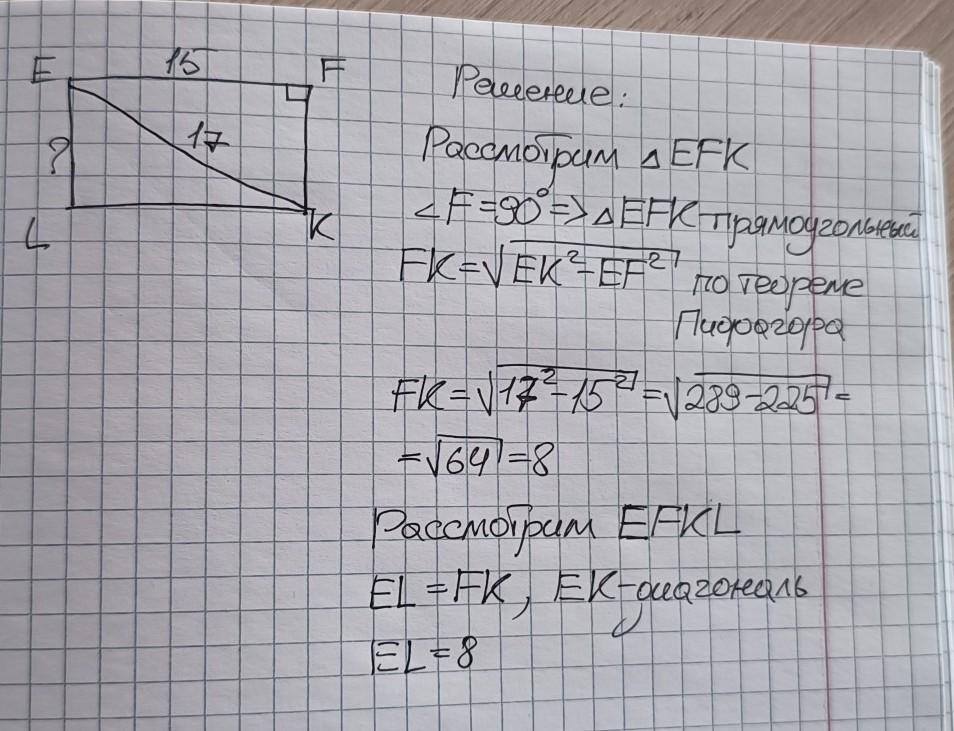 E 15 F
? 17
L K
Решение:
Рассмотрим △EFK
∠F=90°=>△EFK-прямоугольный
FK=√EK²-EF² по теореме
Пифагора
FK=√17²-15²=√289-225=
=√64=8
Рассмотрим EFKL
EL=FK, EK-диагональ
EL=8